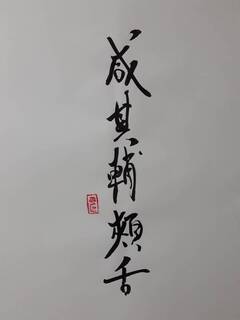 咸其輔頰舌